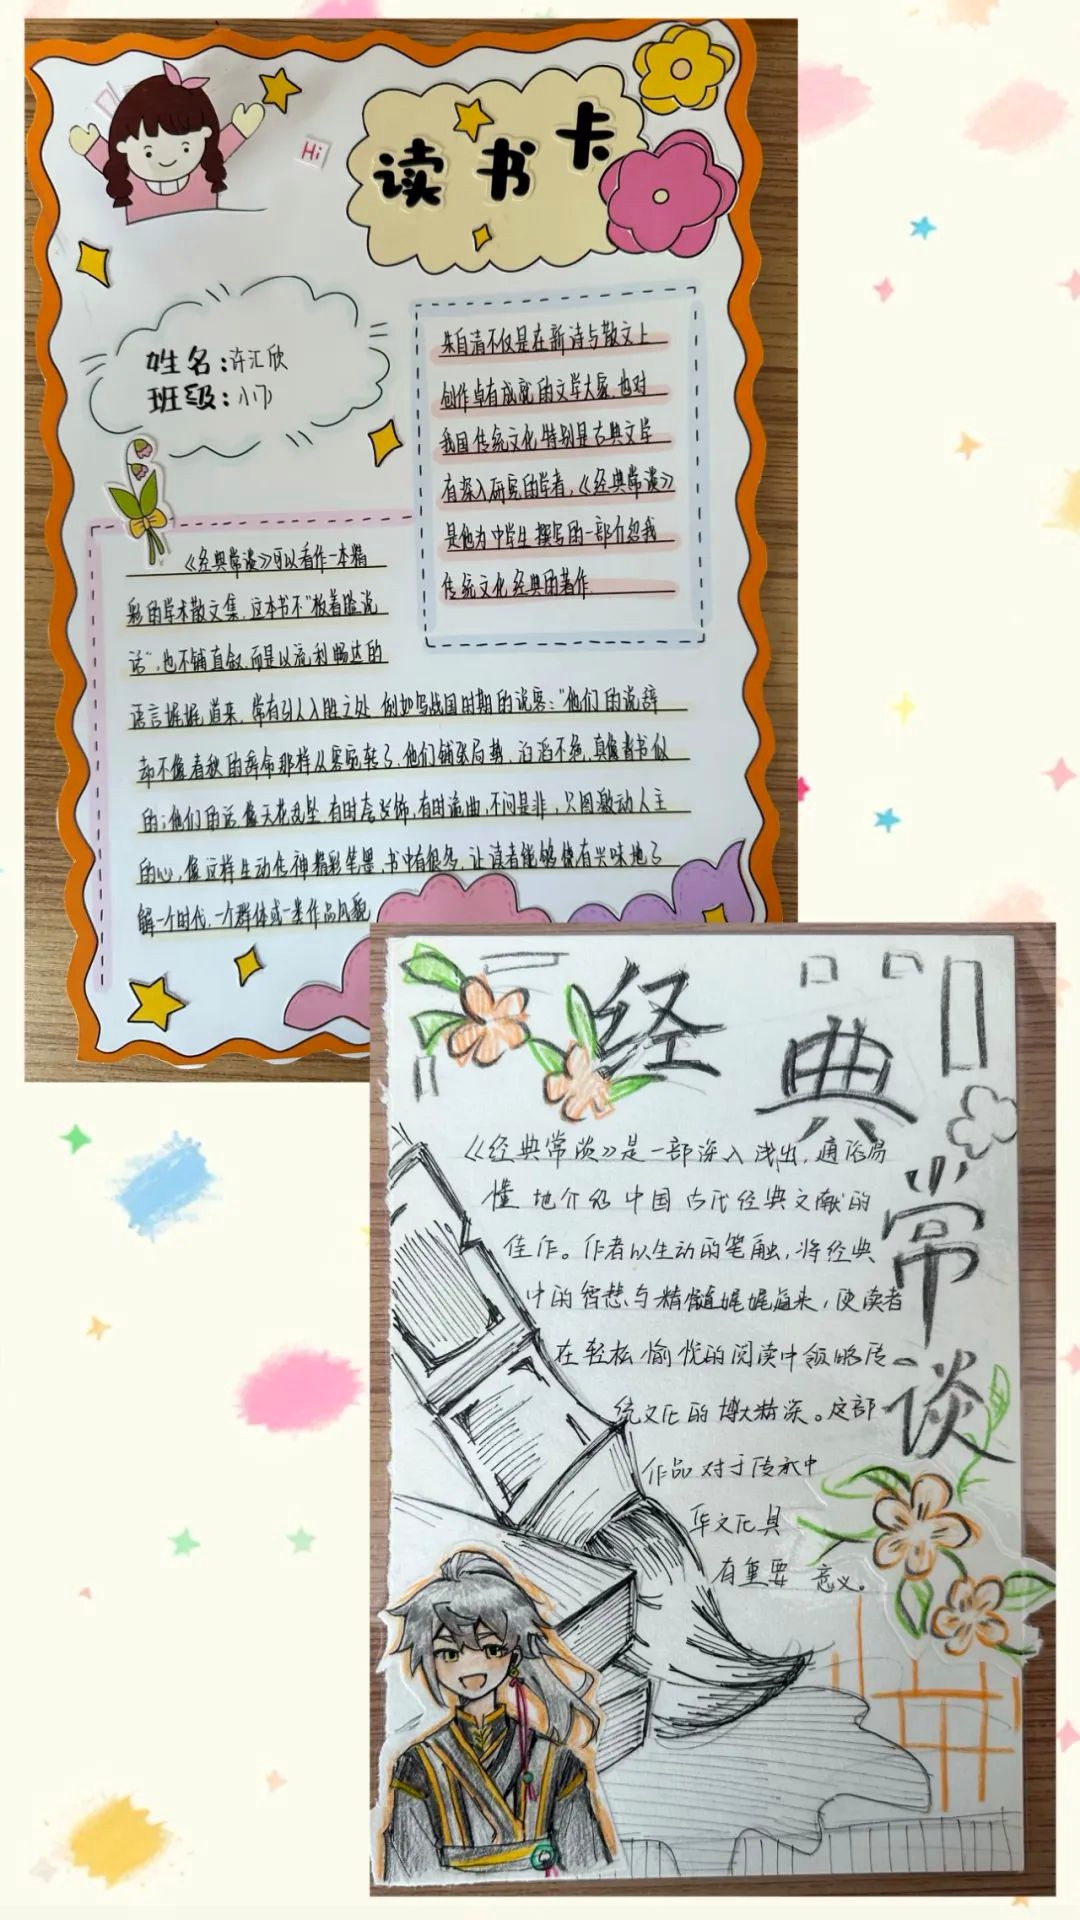 Hi
读书卡
姓名:许汇欣
班级:
朱自清不仅是在新诗与散文上
创作卓有成就的文学大家,也对
我国传统文化特别是古典文学
有深入研究的学者,《经典常谈》
是他为中学生撰写的一部介绍我
传统文化经典的著作.
《经典常谈》可以看作一本精
彩的学术散文集,这本书不“板着脸说
话”,也不铺直叙,而是以流利畅达的
语言娓娓道来,常有引人入胜之处.例如写战国时期的说客:“他们的说辞
却不像春秋的辞命那样从容宛转了,他们铺张局势,滔滔不绝,真像背书似
的;他们的话像天花乱坠,有时夸饰,有时诡曲,不问是非,只图激动人主
的心,像这样生动传神精彩笔墨,书中有很多,让读者能够饶有兴味地了
解一个时代,一个群体或一类作品风貌
经典常谈
《经典常谈》是一部深入浅出,通俗易
懂地介绍中国古代经典文献的
佳作。作者以生动的笔触,将经典
中的智慧与精髓娓娓道来,使读者
在轻松愉悦的阅读中领略传
统文化的博大精深。这部
作品对于传承中
华文化具
有重要意义。